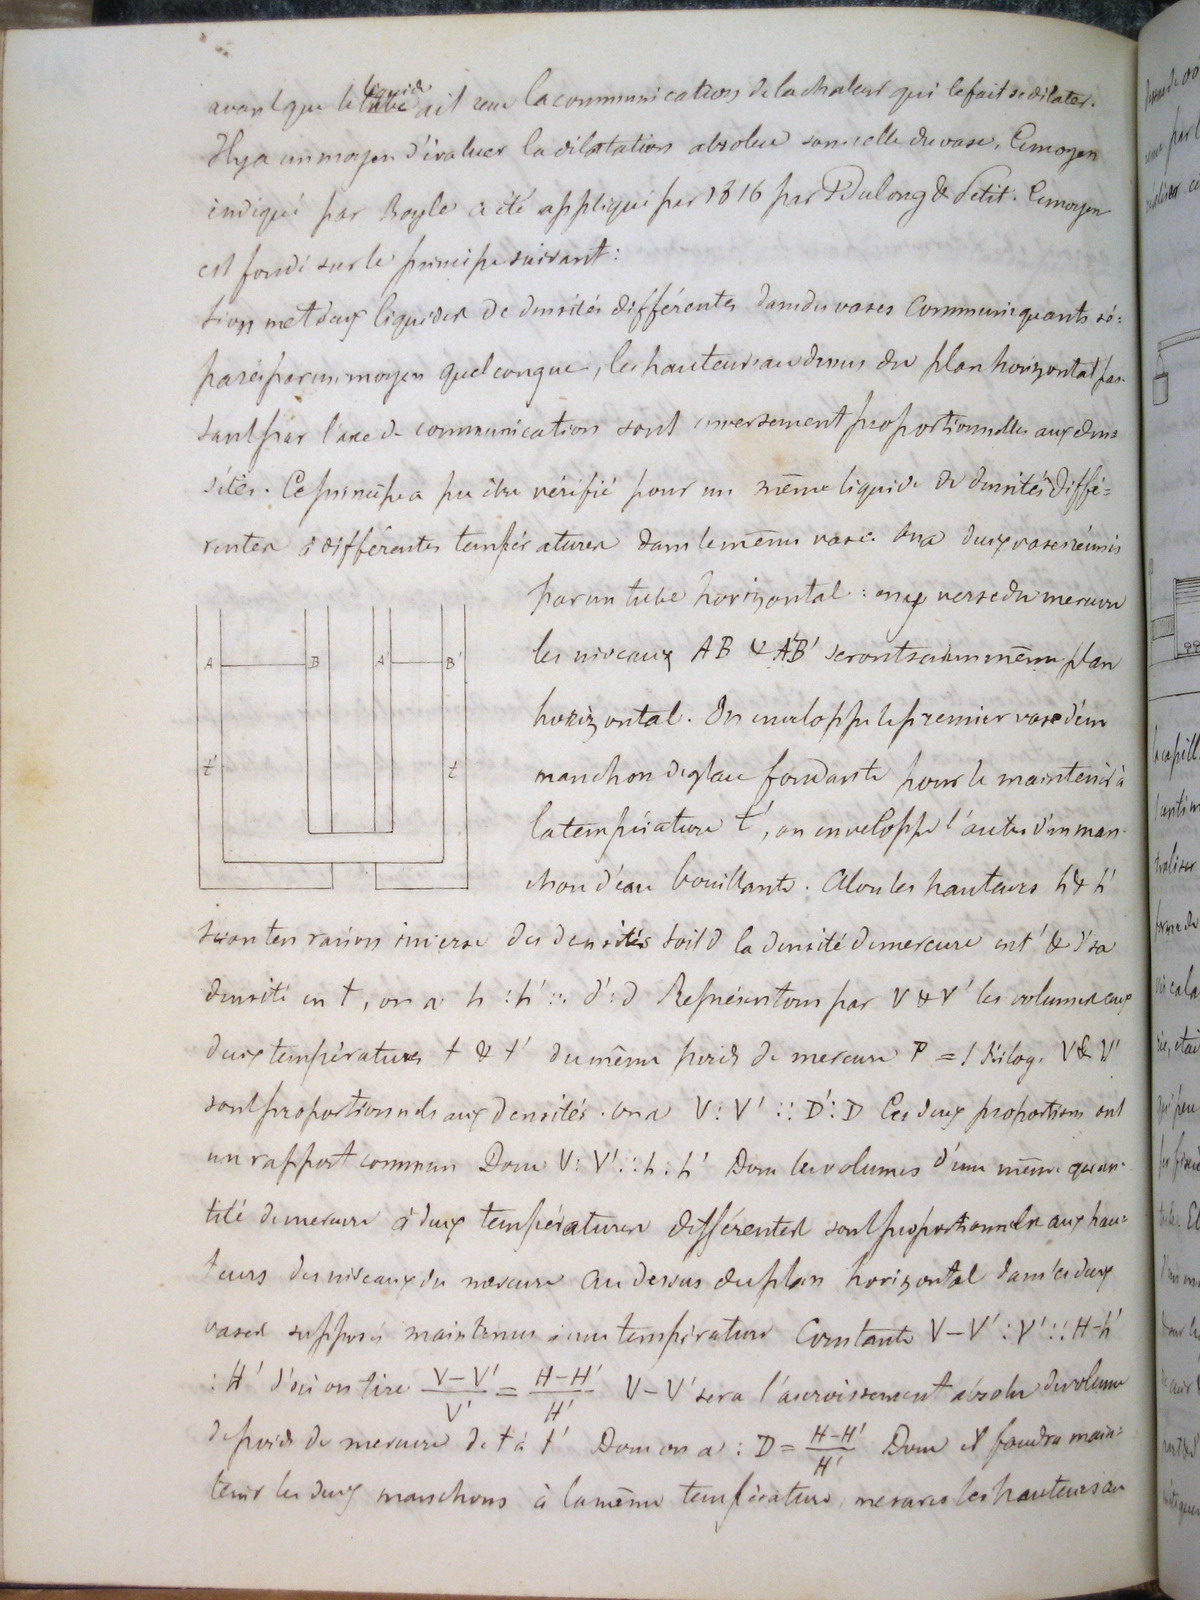 avant que le liquide ait reçu la communication de la chaleur qui le fait se dilater.
Il y a un moyen d'évaluer la dilatation absolue sans celle du vase. Ce moyen
indiqué par Boyle a été appliqué par 1816 par Dulong & Petit. Ce moyen
est fondé sur le principe suivant :
Si on met deux liquides de densités différentes dans des vases communiquants sé=
parés par un moyen quelconque, les hauteurs au dessus du plan horizontal pas-
sant par l'axe de communication sont inversement proportionnelles aux den=
sités. Ce principe a pu être vérifié pour un même liquide de densités diffé=
rentes à différentes températures dans le même vase. On a deux vases réunis
par un tube horizontal : on y verse du mercure
les niveaux AB & A'B' seront sur un même plan
horizontal. On enveloppe le premier vase d'un
manchon de glace fondante pour le maintenir à
la température t', on enveloppe l'autre d'un man-
chon d'eau bouillante. Alors les hauteurs h & h'
A B A' B'
t' t
seront en raison inverse des densités soit d la densité du mercure en t' & d' sa
densité en t, on a h : h' :: d' : d Représentons par V & V' les volumes aux
deux températures t & t' du même poids de mercure P = 1 Kilog. V & V'
sont proportionnels aux densités. on a V : V' :: D' : D Ces deux proportions ont
un rapport commun Donc V : V' :: h : h' Donc les volumes d'une même quan-
tité de mercure à deux températures différentes sont proportionnels aux hau=
teurs des niveaux du mercure au dessus du plan horizontal dans les deux
vases supposés maintenus à une température Constante V – V' : V' :: H – h'
: H' d'où on tire V – V' / V' = H – H' / H' V – V' sera l'accroissement absolu du volume
du poids de mercure de t à t' Donc on a : D = H – H' / H' Donc il faudra main=
tenir les deux manchons à la même température, mesurer les hauteurs au